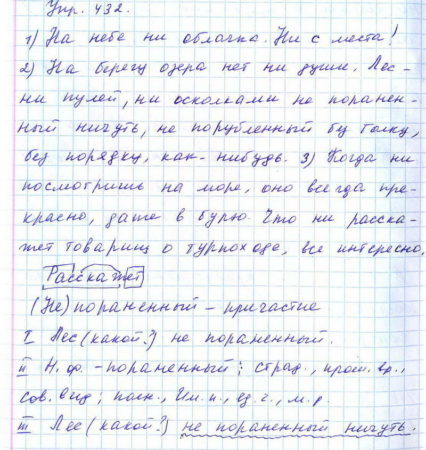 Упр. 432.
1) На небе ни облачка. Ни с места!
2) На берегу озера нет ни души. Лес-
ни пулей, ни осколками не поранен-
ный ничуть, не порубленный без толку,
без порядку, как-нибудь. 3) Когда ни
посмотришь на море, оно всегда пре-
красно, даже в бурю. Что ни расска-
жет товарищ о турпоходе, все интересно.
Расскажет
(Не) пораненный – причастие
I Лес (какой?) не пораненный.
II Н.ф. – пораненный; страд., прош. вр.,
сов. вид; полн., Им. п., ед. ч., м. р.
III Лес (какой?) не пораненный ничуть.